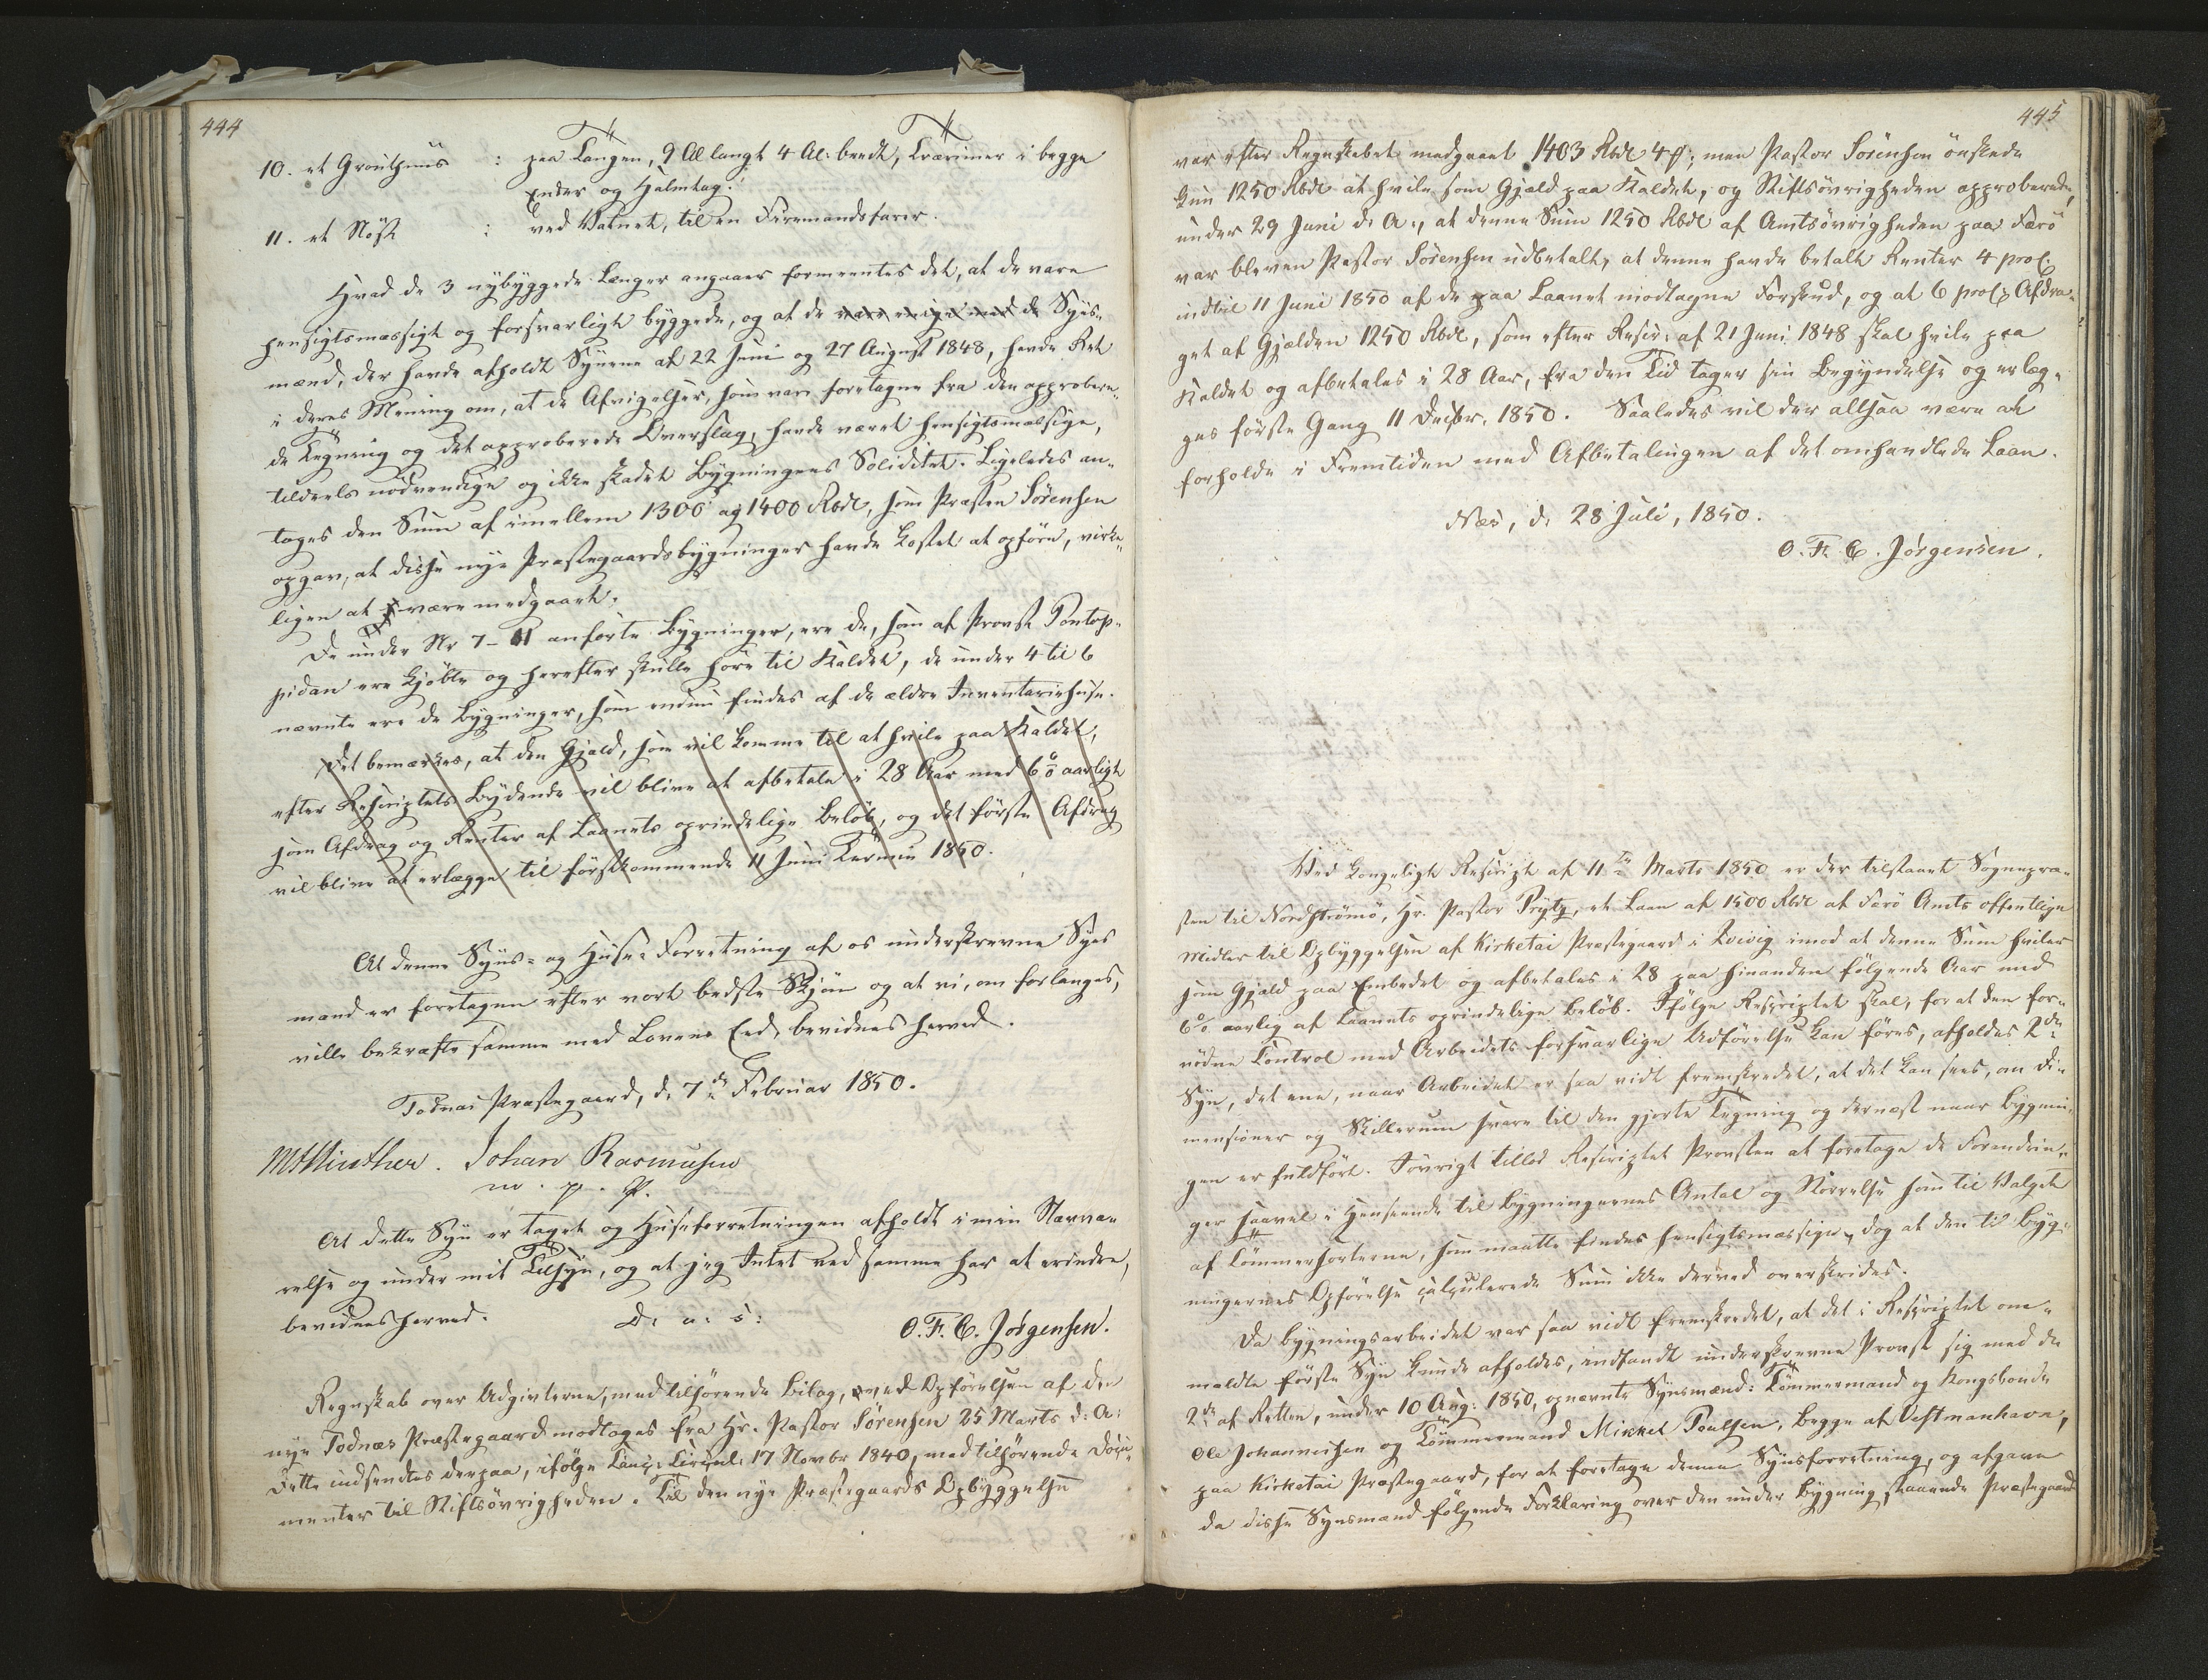 444
10. et Grouthuus : paa Tangen, 9 Al langt 4 Al: bredt, Tværimer i begge
Ender og Halmtag.
11. et Nöst : ved Vatnet, til en Firemandsfarer.
Hvad de 3 nybyggede Længer angaaer formeentes det, at de vare
hensigtsmæssigt og forsvarligt byggede, og at de vare enige med de Syns-
mænd, der havde afholdt Synene af 22 Juni og 27 August 1848, havde Ret
i deres Mening om, at de Afvigelser, som vare foretagne fra den approbere-
de Tegning og det approberede Overslag, havde været hensigtsmæssige,
tildeels nödvendige og ikke skadet Bygningens Soliditet. Ligeledes an-
toges den Sum af imellem 1300 og 1400 Rbdl, som Præsten Sörensen
opgav, at disse nye Præstegaardsbygninger havde kostet at opföre, virke-
ligen at være medgaaet.
De under Nr 7-11 anförte Bygninger, ere de, som af Provst Pontop-
pidan ere kjöbte og herefter skulle höre til Kaldet, de under 4 til 6
nævnte ere de Bygninger, som endnu findes af de ældre Inventariehuse.
Det bemærkes, at den Gjæld, som vil komme til at hvile paa Kaldet,
efter Rescriptets Lydende vil blive at afbetale i 28 Aar med 6 % aarligt
som Afdrag og Renter af Laanets oprindelige Belöb, og det förste Afdrag
vil blive at erlægge til förstkommende 11 Juni Termin 1850.
At denne Syns- og Huse-Forretning af os underskrevne Syns
mænd er foretagen efter vort bedste Skjön og at vi, om forlanges,
ville bekræfte samme med Lovens Eed, bevidnes herved.
Todnæs Præstegaard, d. 7de Februar 1850.
MHWinther. Johan Rasmusen
m. p. P.
At dette Syn er taget og Huseforretningen afholdt i min Nærvæ-
relse og under mit Tilsyn, og at jeg Intet ved samme har at erindre,
bevidnes herved. D. u. s: O. F. C. Jörgensen.
Regnskab over Udgivterne, med tilhörende Bilag, ved Opförelsen af den
nye Todnæs Præstegaard modtoges fra Hr. Pastor Sörensen 25 Marts d: A:
Dette indsendtes derpaa, ifölge Canc: Circul: 17 Novbr 1840, med tilhörende Docu-
menter til Stiftsövrigheden. Til den nye Præstegaards Opbyggelse
445
var efter Regnskabet medgaaet 1403 Rbdl 4 ß; men Pastor Sörensen önskede
kun 1250 Rbdl at hvile som Gjæld paa Kaldet, og Stiftsövrigheden approberede,
under 29 Juni d: A:, at denne Sum 1250 Rbdl af Amtsövrigheden paa Færö
var bleven Pastor Sörensen udbetalt, at denne havde betalt Renter 4 proC.
indtil 11 Juni 1850 af de paa Laanet modtagne Forskud, og at 6 proCs Afdra-
get af Gjælden 1250 Rbdl, som efter Rescr: af 21 Juni 1848 skal hvile paa
Kaldet og afbetales i 28 Aar, fra den Tid tager sin Begyndelse og erlæg-
ges förste Gang 11 Decbr. 1850. Saaledes vil der altsaa være at
forholde i Fremtiden med Afbetalingen af det omhandlede Laan.
Næs, d. 28 Juli, 1850.
O. F. C. Jörgensen.
Ved Kongeligt Rescript af 11te Marts 1850 er der tilstaaet Sognepræ-
sten til Nordströmö, Hr. Pastor Prytz, et Laan af 1500 Rbdl af Færö Amts offentlige
Midler til Opbyggelsen af Kirketai Præstegaard i Qvivig imod at denne Sum hviler
som Gjæld paa Embedet og afbetales i 28 paa hinanden fölgende Aar med
6% aarlig af Laanets oprindelige Belöb. Ifölge Rescriptet skal, for at den for-
nödne Control med Arbeidets forsvarlige Udförelse kan föres, afholdes 2de
Syn, det ene, naar Arbeidet er saa vidt fremskredet, at det kan sees, om Di-
mensioner og Skillerum svare til den gjorte Tegning og dernæst naar Bygnin-
gen er fuldfört. Iövrigt tillod Rescriptet Provsten at foretage de Forandrin-
ger saavel i Henseende til Bygningernes Antal og Störrelse som til Valget
af Tömmersorterne, som maatte findes hensigtsmæssige, dog at den til Byg-
ningernes Opförelse calculerede Sum ikke derved overskrides.
Da Bygningsarbeidet var saa vidt fremskredet, at det i Rescriptet om-
meldte förste Syn kunde afholdes, indfandt underskrevne Provst sig med de
2de af Retten, under 10 Aug: 1850, opnævnte Synsmænd: Tömmermand og Kongsbonde
Ole Johannesen og Tömmermand Mikkel Poulsen, begge af Vestmanhavn,
paa Kirketai Præstegaard, for at foretage denne Synsforretning, og afgave
da disse Synsmænd fölgende Forklaring over den under Bygning staaende Præstegaard